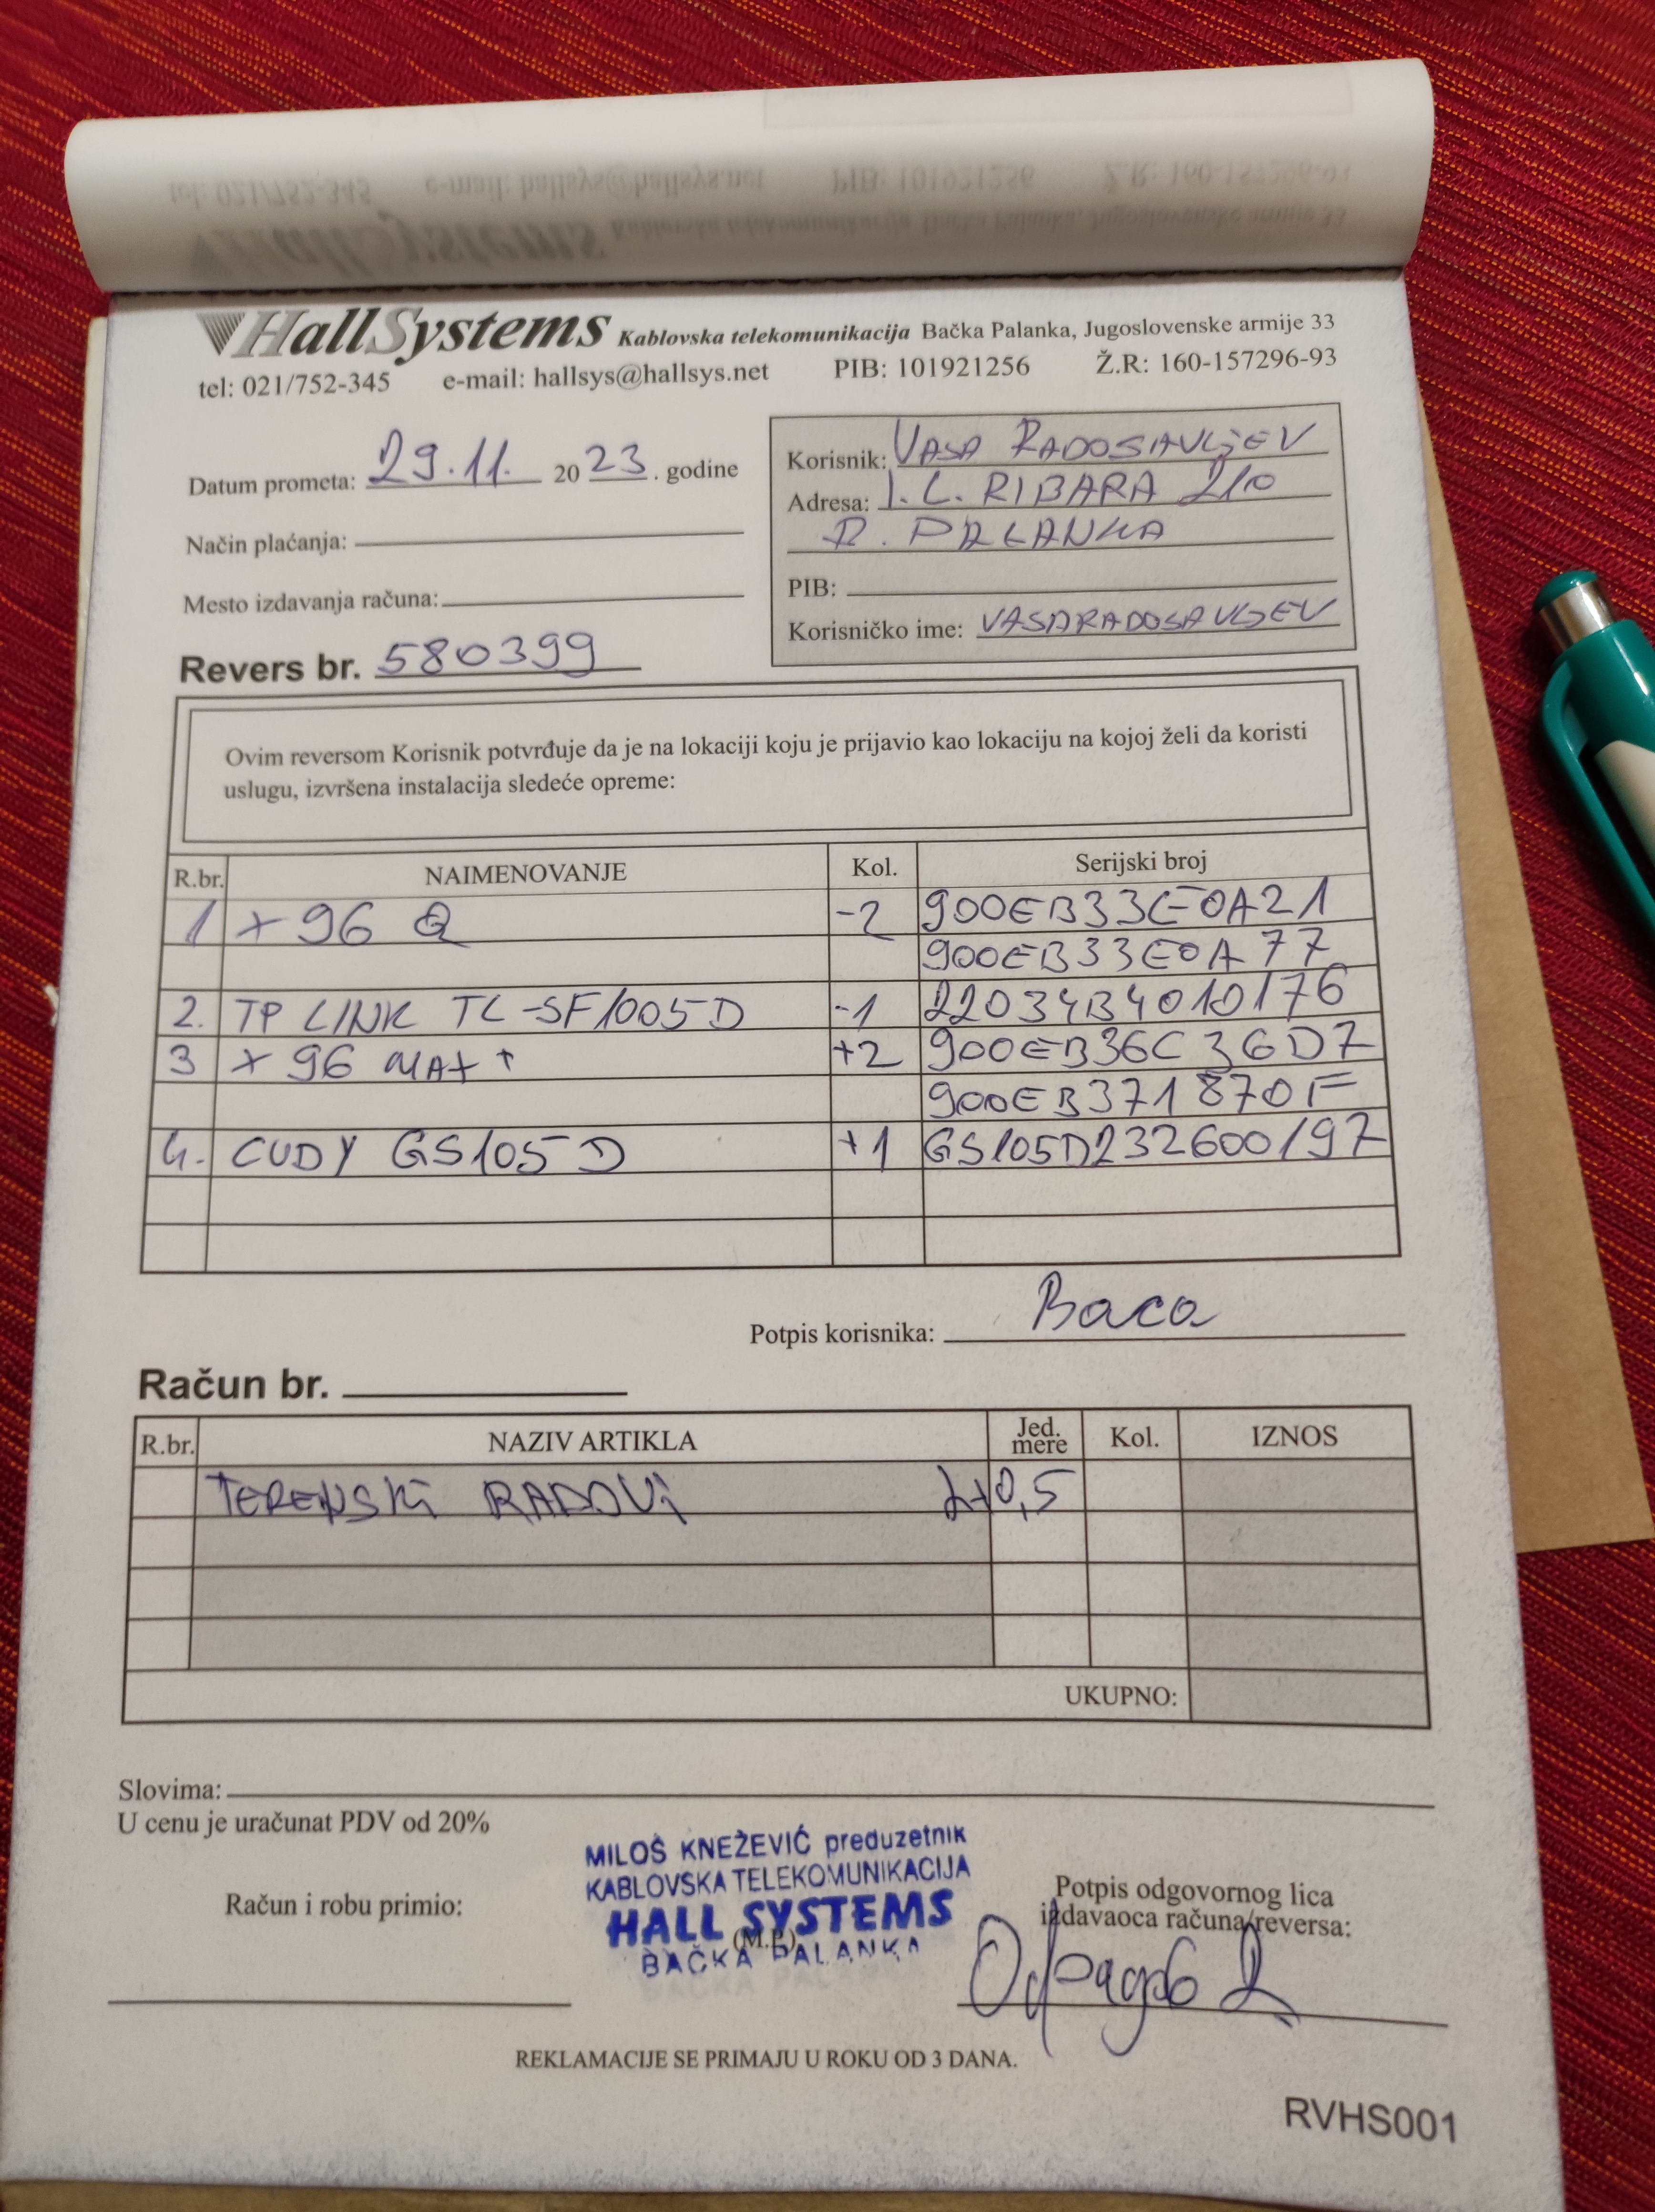 HallSystems Kablovska telekomunikacija Bačka Palanka, Jugoslovenske armije 33
tel: 021/752-345 e-mail: hallsys@hallsys.net PIB: 101921256 Ž.R: 160-157296-93
Datum prometa: 29.11. 2023. godine
Način plaćanja:
Mesto izdavanja računa:
Revers br. 580399
Korisnik: VASA RADOSAVLJEV
Adresa: I. L. RIBARA 210
B. PALANKA
PIB:
Korisničko ime: VASARADOSAVLJEV
Ovim reversom Korisnik potvrđuje da je na lokaciji koju je prijavio kao lokaciju na kojoj želi da koristi
uslugu, izvršena instalacija sledeće opreme:
R.br. NAIMENOVANJE Kol. Serijski broj
1 X 96 Q -2 900EB33CE0A21
900EB33E0A77
2. TP LINK TL-SF1005D -1 22034B4010176
3 X 96 MAX + +2 900EB36C36D7
900EB371870F
4. CUDY GS105D +1 GS105D232600197
Potpis korisnika: Васа
Račun br.
R.br. NAZIV ARTIKLA Jed. mere Kol. IZNOS
TERENSKI RADOVI 2x0,5
UKUPNO:
Slovima:
U cenu je uračunat PDV od 20%
Račun i robu primio:
MILOŠ KNEŽEVIĆ preduzetnik
KABLOVSKA TELEKOMUNIKACIJA
HALL SYSTEMS
(M.P.)
BAČKA PALANKA
Potpis odgovornog lica
izdavaoca računa/reversa:
REKLAMACIJE SE PRIMAJU U ROKU OD 3 DANA.
RVHS001